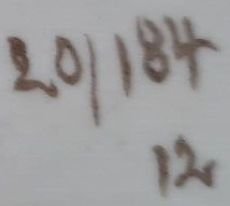 20/184
12